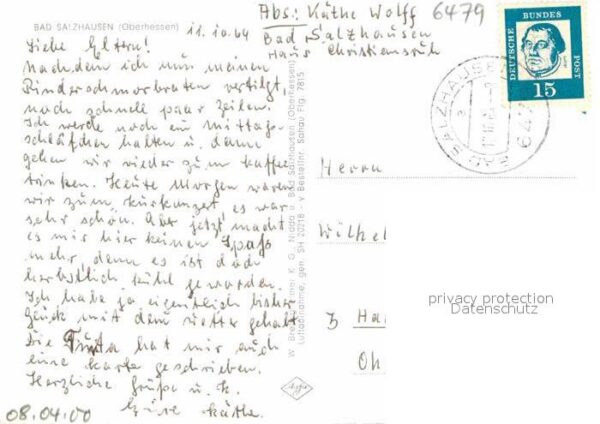 BAD SALZHAUSEN (Oberhessen)
11.10.64
Abs: Käthe Wolff
6479
Bad Salzhausen
Haus Christiansruh
Liebe Eltern!
Nachdem ich nun meinen
Rinderschmorbraten vertilgt,
noch schnell paar Zeilen.
Ich werde noch ein Mittags-
schläfchen halten u. dann
gehen wir wieder zum Kaffee
trinken. Heute Morgen waren
wir zum Kurkonzert, es war
sehr schön. Aber jetzt macht
es mir hier keinen Spaß
mehr, denn es ist doch
herbstlich kühl geworden.
Ich habe ja eigentlich bisher
Glück mit dem Wetter gehabt
Die hat mir auch
eine Karte geschrieben.
Herzliche Grüße u. K.
Eure Käthe
08.04.00
W. K. G., Nidda u. Bad Salzhausen (Oberhessen)
Luftaufnahme, gen. SH 20218 - v Bestellnr. Sahau Flg 7815
DEUTSCHE BUNDES POST
15
BAD SALZHAUSEN
Herrn
Wilhel
3 Ha
Oh
privacy protection
Datenschutz